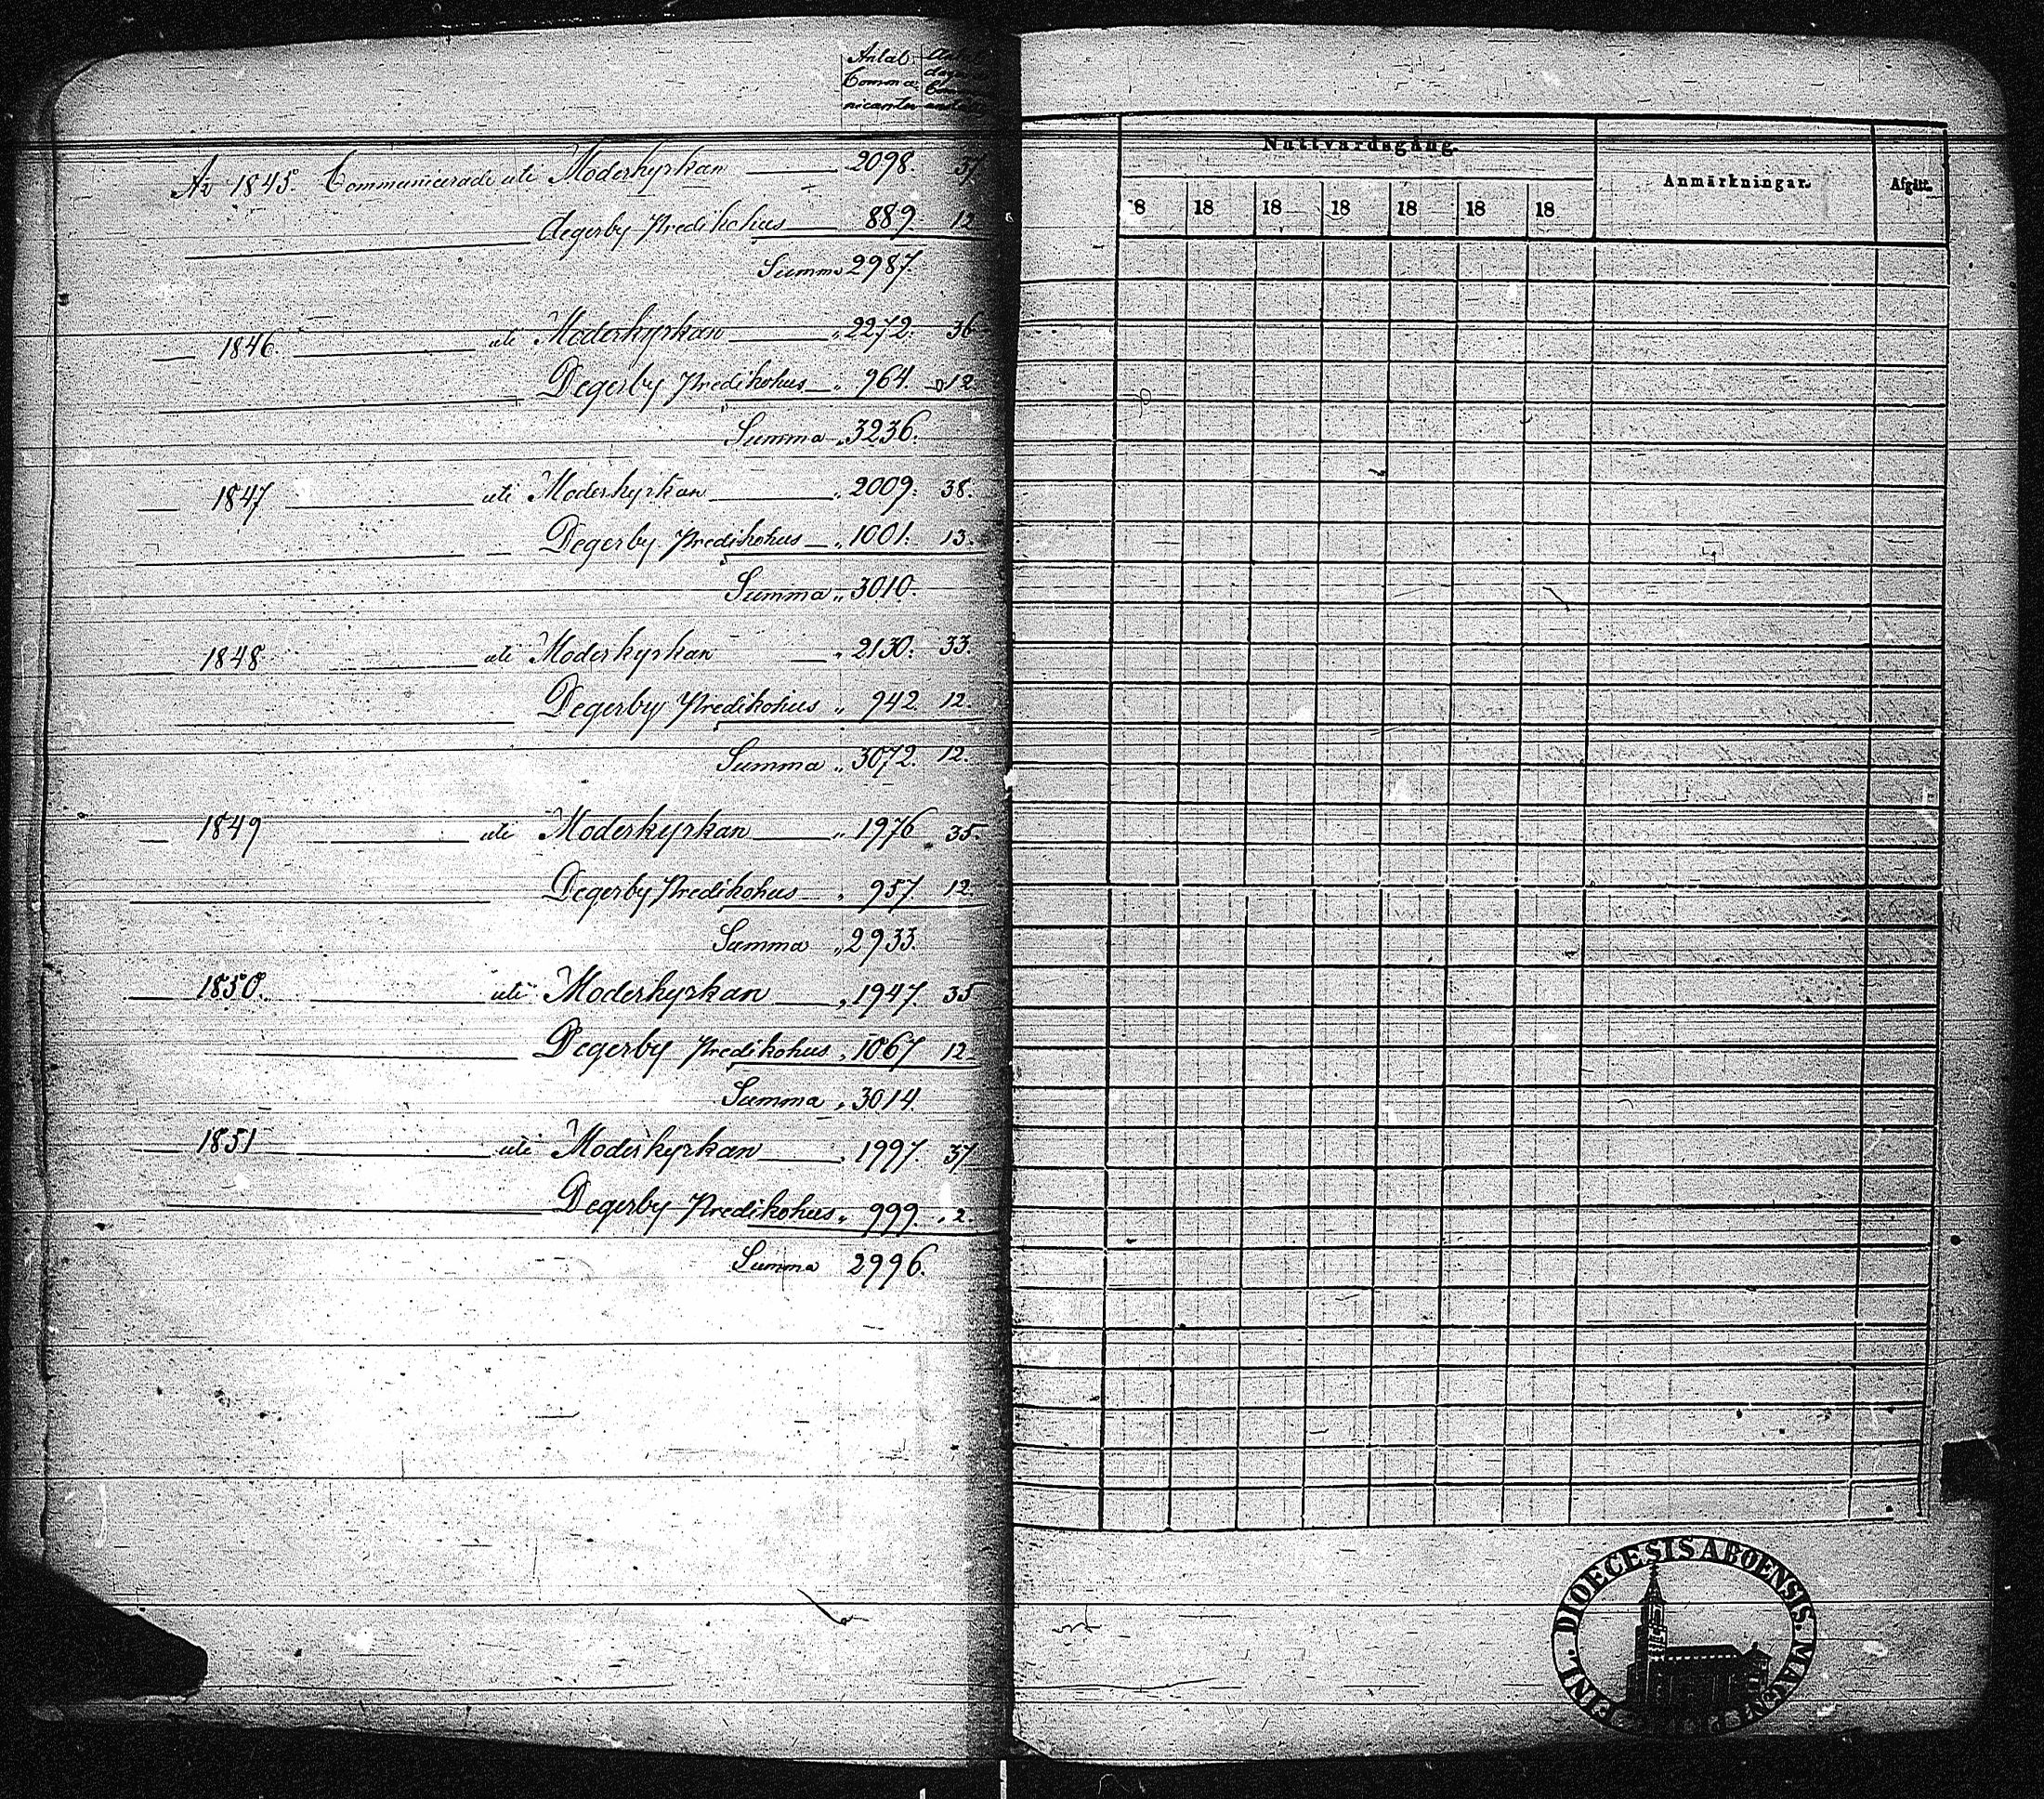 Antal
Commu-
nicanter
År 1845. Communicerade uti Moderkyrkan 2098. 37
Degerby Predikohus 889. 12
Summa 2987.
1846. uti Moderkyrkan " 2272. 36
Degerby Predikohus " 964. 12.
Summa " 3236.
1847 uti Moderkyrkan " 2009. 38.
Degerby Predikohus " 1001. 13.
Summa " 3010.
1848 uti Moderkyrkan " 2130. 33.
Degerby Predikohus " 942 12.
Summa " 3072. 12.
1849 uti Moderkyrkan " 1976 35.
Degerby Predikohus " 957. 12.
Summa " 2933.
1850. uti Moderkyrkan " 1947. 35
Degerby Predikohus " 1067 12.
Summa " 3014.
1851 uti Moderkyrkan " 1997. 37
Degerby Predikohus " 999. 12.
Summa 2996.
Nattvardsgång.
Anmärkningar.
Afgått.
18 18 18 18 18 18 18
DIOECESIS ABOENSIS